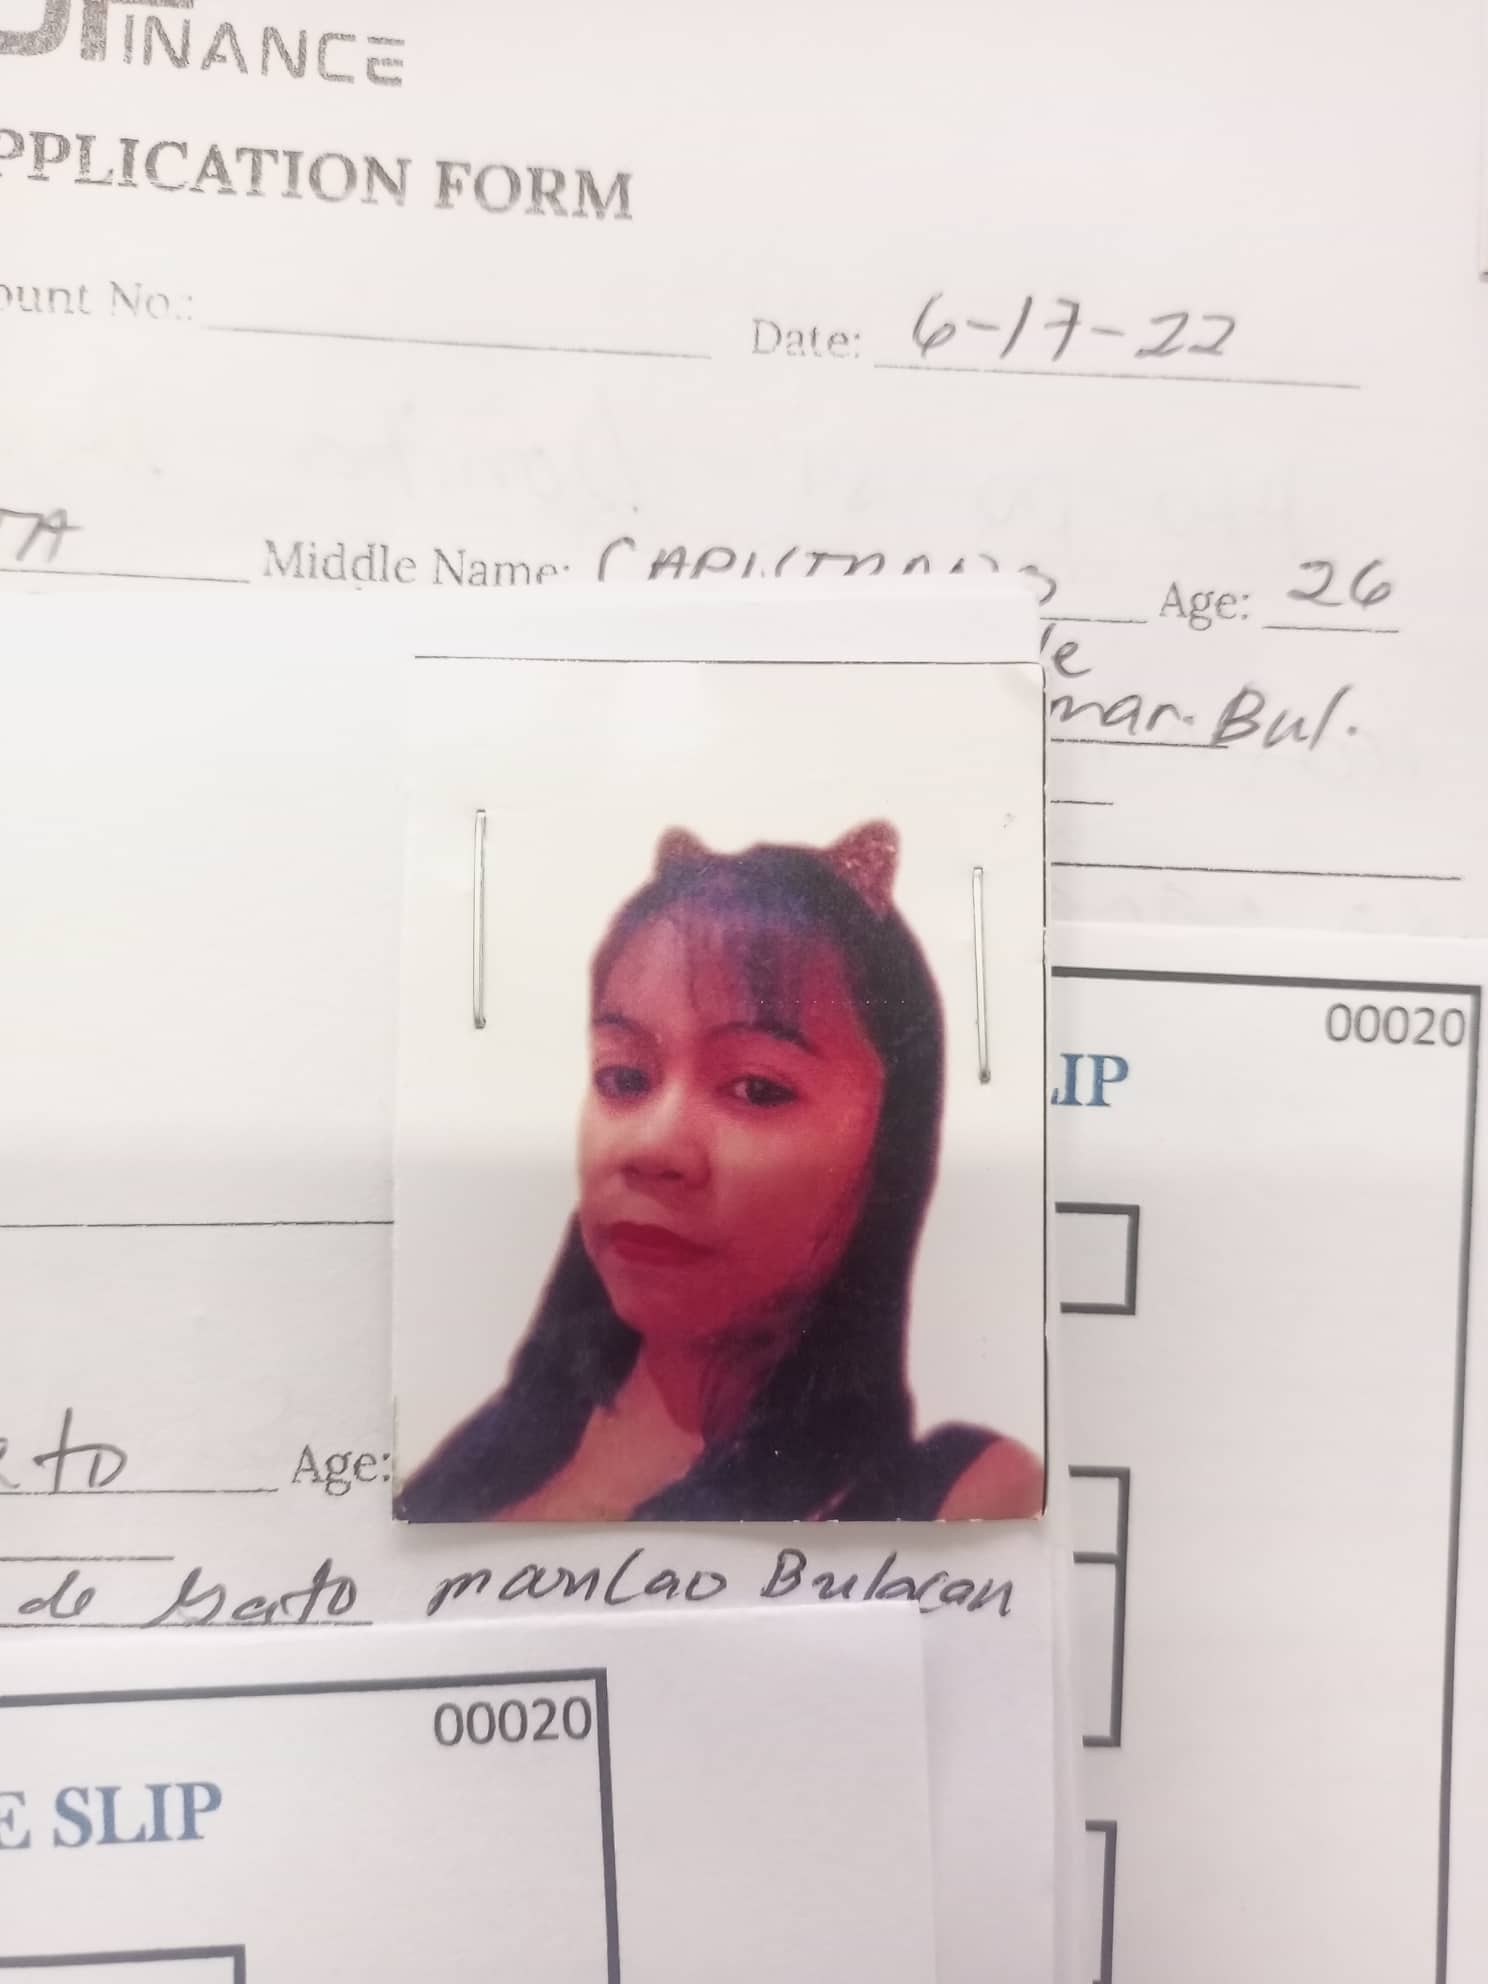 FINANCE
PPLICATION FORM
ount No.: Date: 6-17-22
TA Middle Name: Age: 26
mar. Bul.
00020
LIP
to Age:
de manlao Bulacan
00020
E SLIP